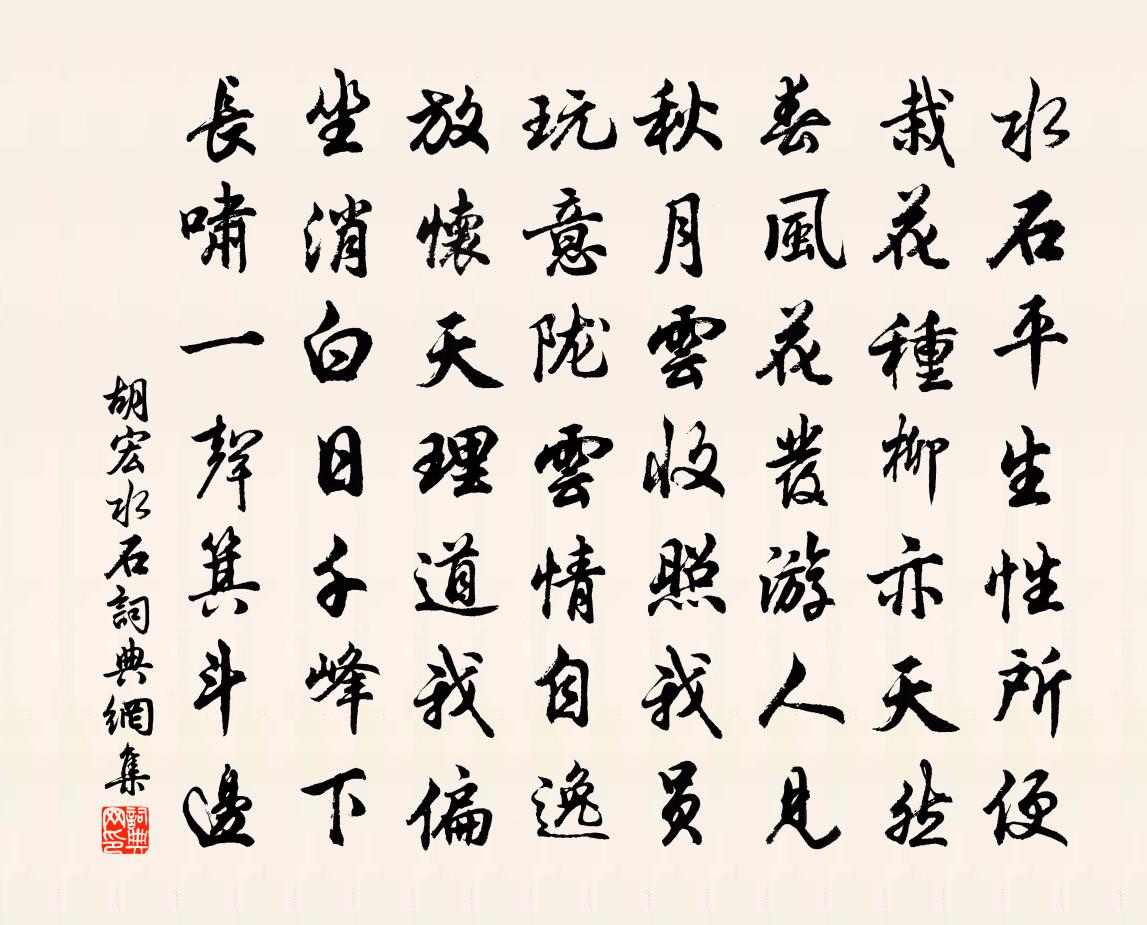 水石平生性所便
栽花種柳亦天然
春風花發游人見
秋月雲收照我員
玩意陇雲情自逸
放懷天理道我偏
坐消白日千峰下
長嘯一聲箕斗邊
胡宏水石詞典網集
詞典網印